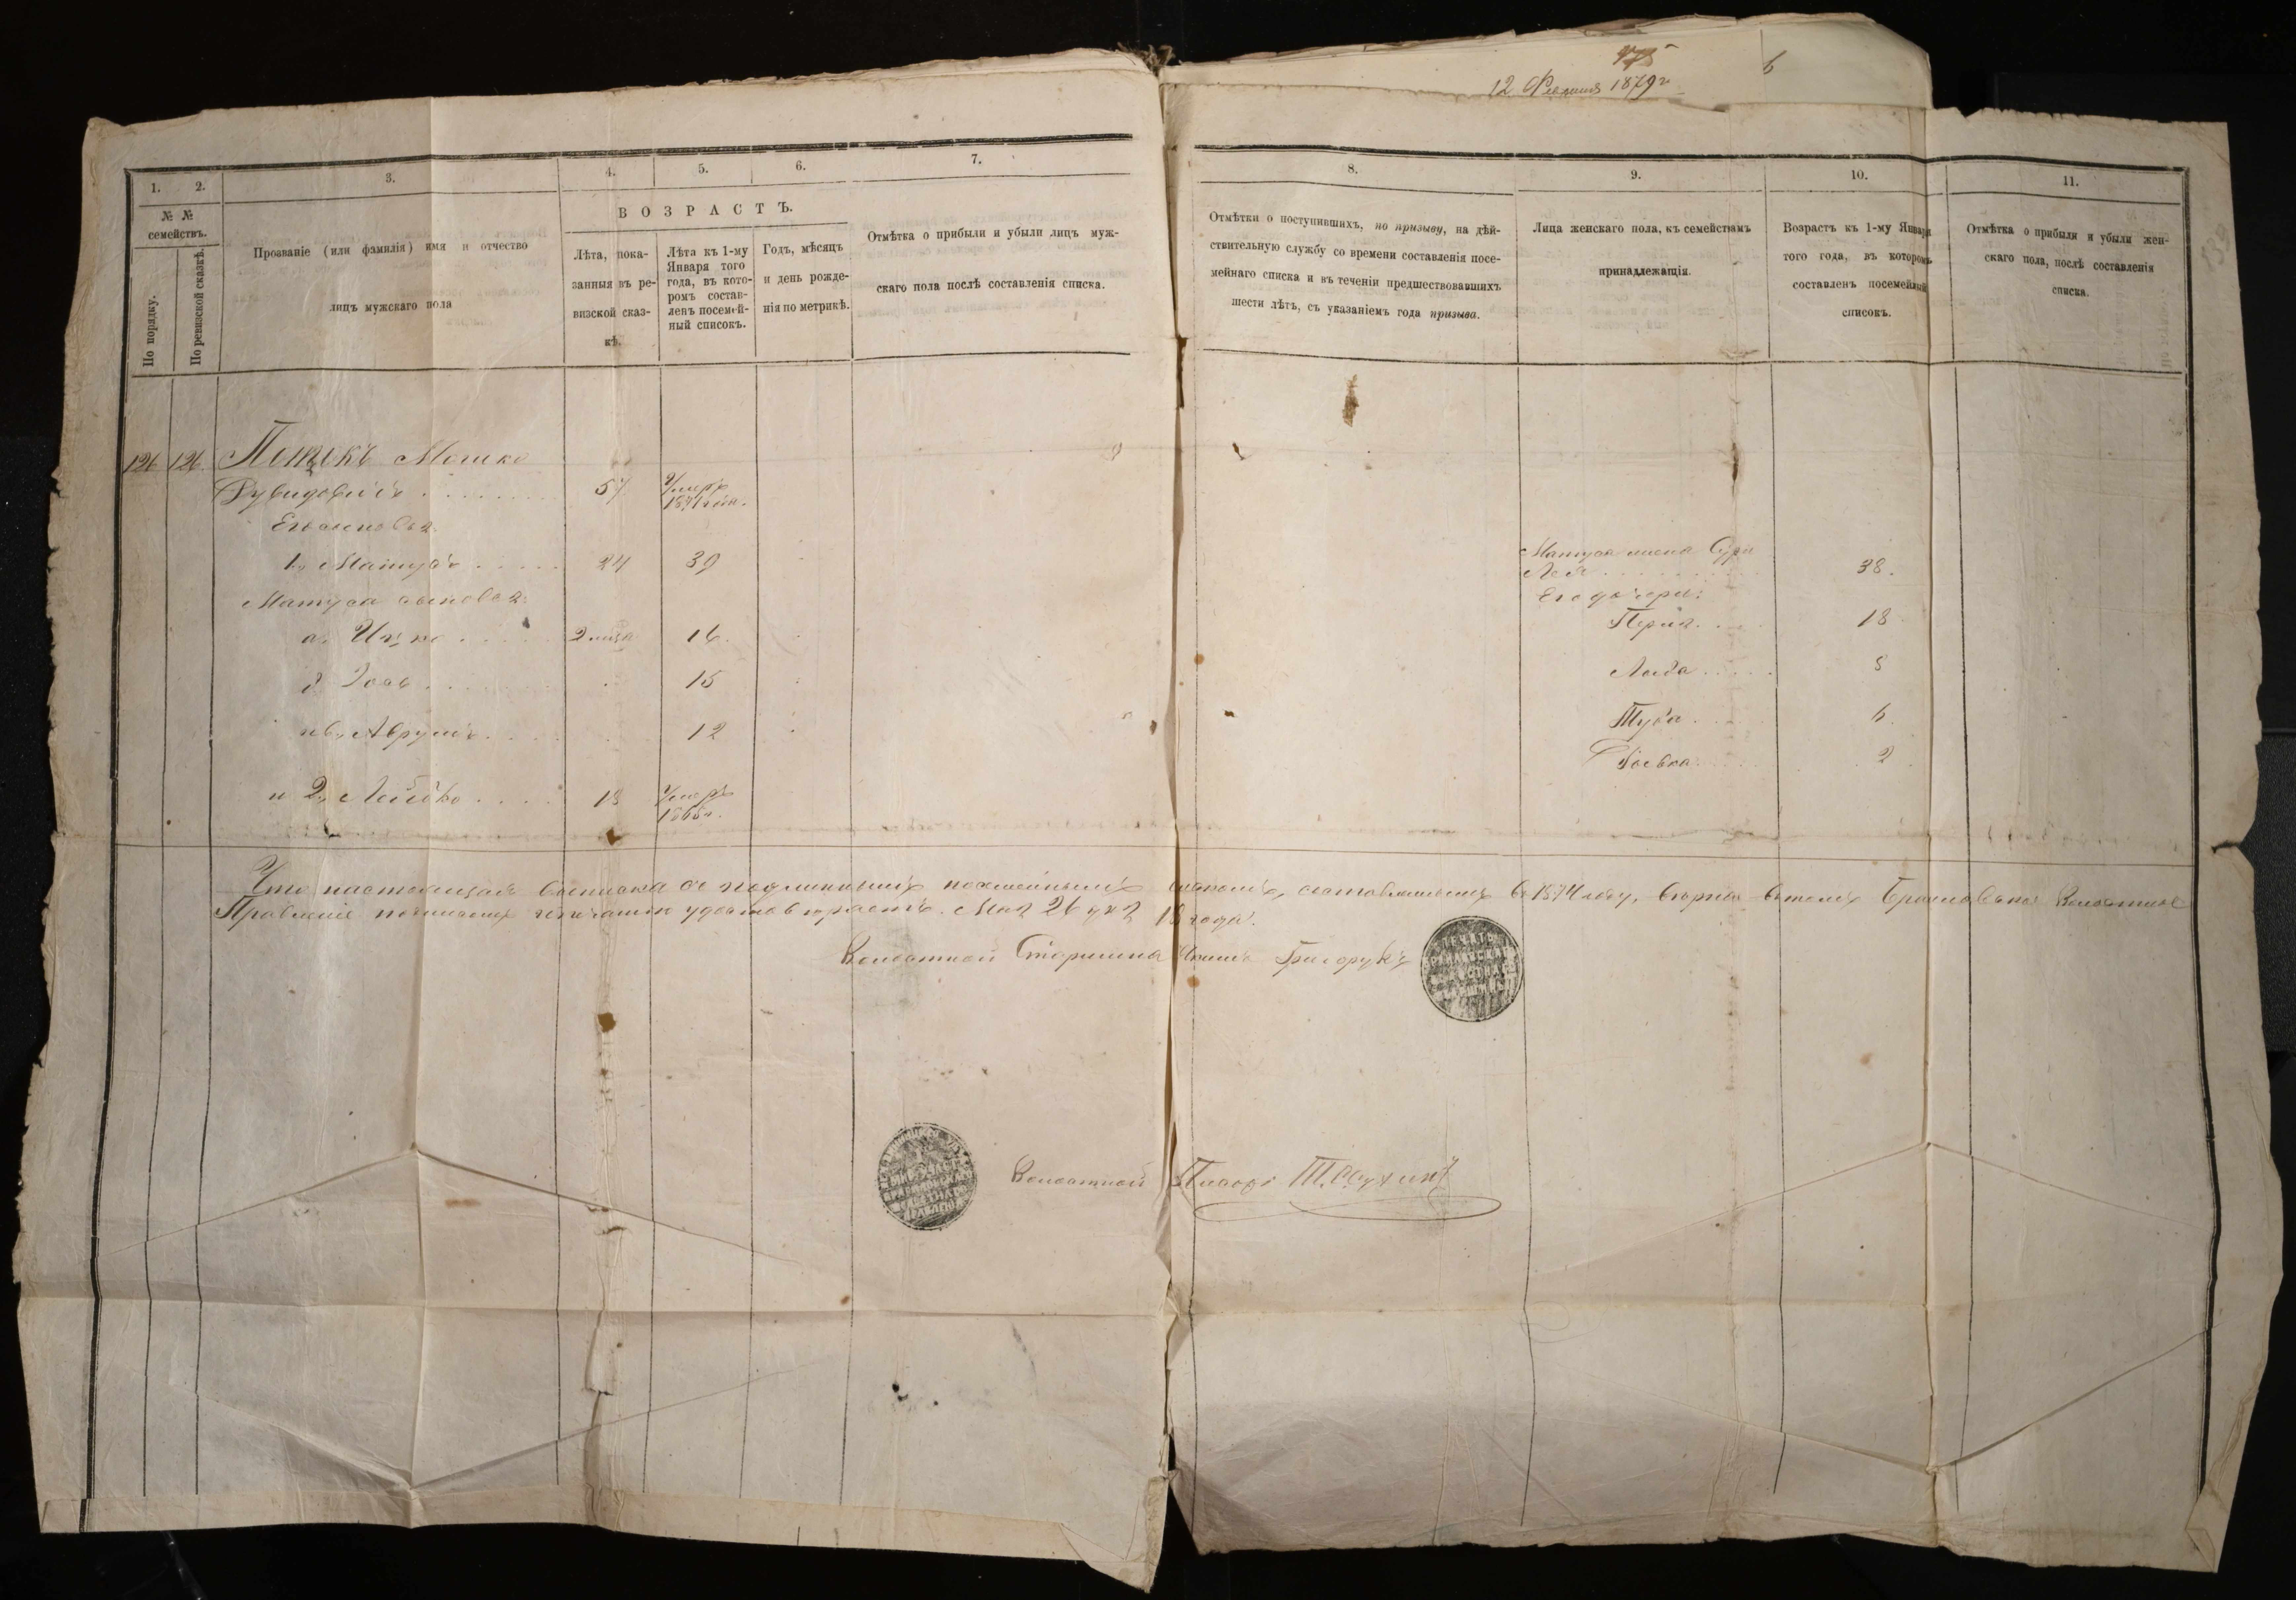 475
12 1879 г
6
1.
2.
3.
4.
5.
6.
7.
№ №
семействъ.
По порядку.
По ревизской сказкѣ.
Прозваніе (или фамилія) имя и отчество
лицъ мужскаго пола
ВОЗРАСТЪ.
Лѣта, пока-
занныя въ ре-
визской сказ-
кѣ.
Лѣта къ 1-му
Января того
года, въ кото-
ромъ состав-
ленъ посемей-
ный списокъ.
Годъ, мѣсяцъ
и день рожде-
нія по метрикѣ.
Отмѣтка о прибыли и убыли лицъ муж-
скаго пола послѣ составленія списка.
8.
9.
10.
11.
Отмѣтки о поступившихъ, по призыву, на дѣй-
ствительную службу со времени составленія посе-
мейнаго списка и въ теченіи предшествовавшихъ
шести лѣтъ, съ указаніемъ года призыва.
Лица женскаго пола, къ семействамъ
принадлежащія.
Возрастъ къ 1-му Января
того года, въ которомъ
составленъ посемейный
списокъ.
Отмѣтка о прибыли и убыли жен-
скаго пола, послѣ составленія
списка.
126 126 Мошко
57 Умеръ
1871 года.
Его сыновья
1., Матусъ 24 39
Матуса сыновья:
а., Ицко 2 мѣс. 16.
15
и в., Аврумъ 12
и 2., Лейбко 18 Умеръ
Матуса жена Сура
Лея 38.
Его дочери:
Перля 18
8
Туба 6.
2
Что настоящая выписка съ подлиннымъ посемейнымъ спискомъ, составленнымъ въ 1874 году, вѣрна въ томъ Браиловское Волостное
Правленіе подписомъ и печатью удостовѣряетъ. Мая 26 дня 18 года.
Волостной Старшина Григорукъ
Волостной Писарь